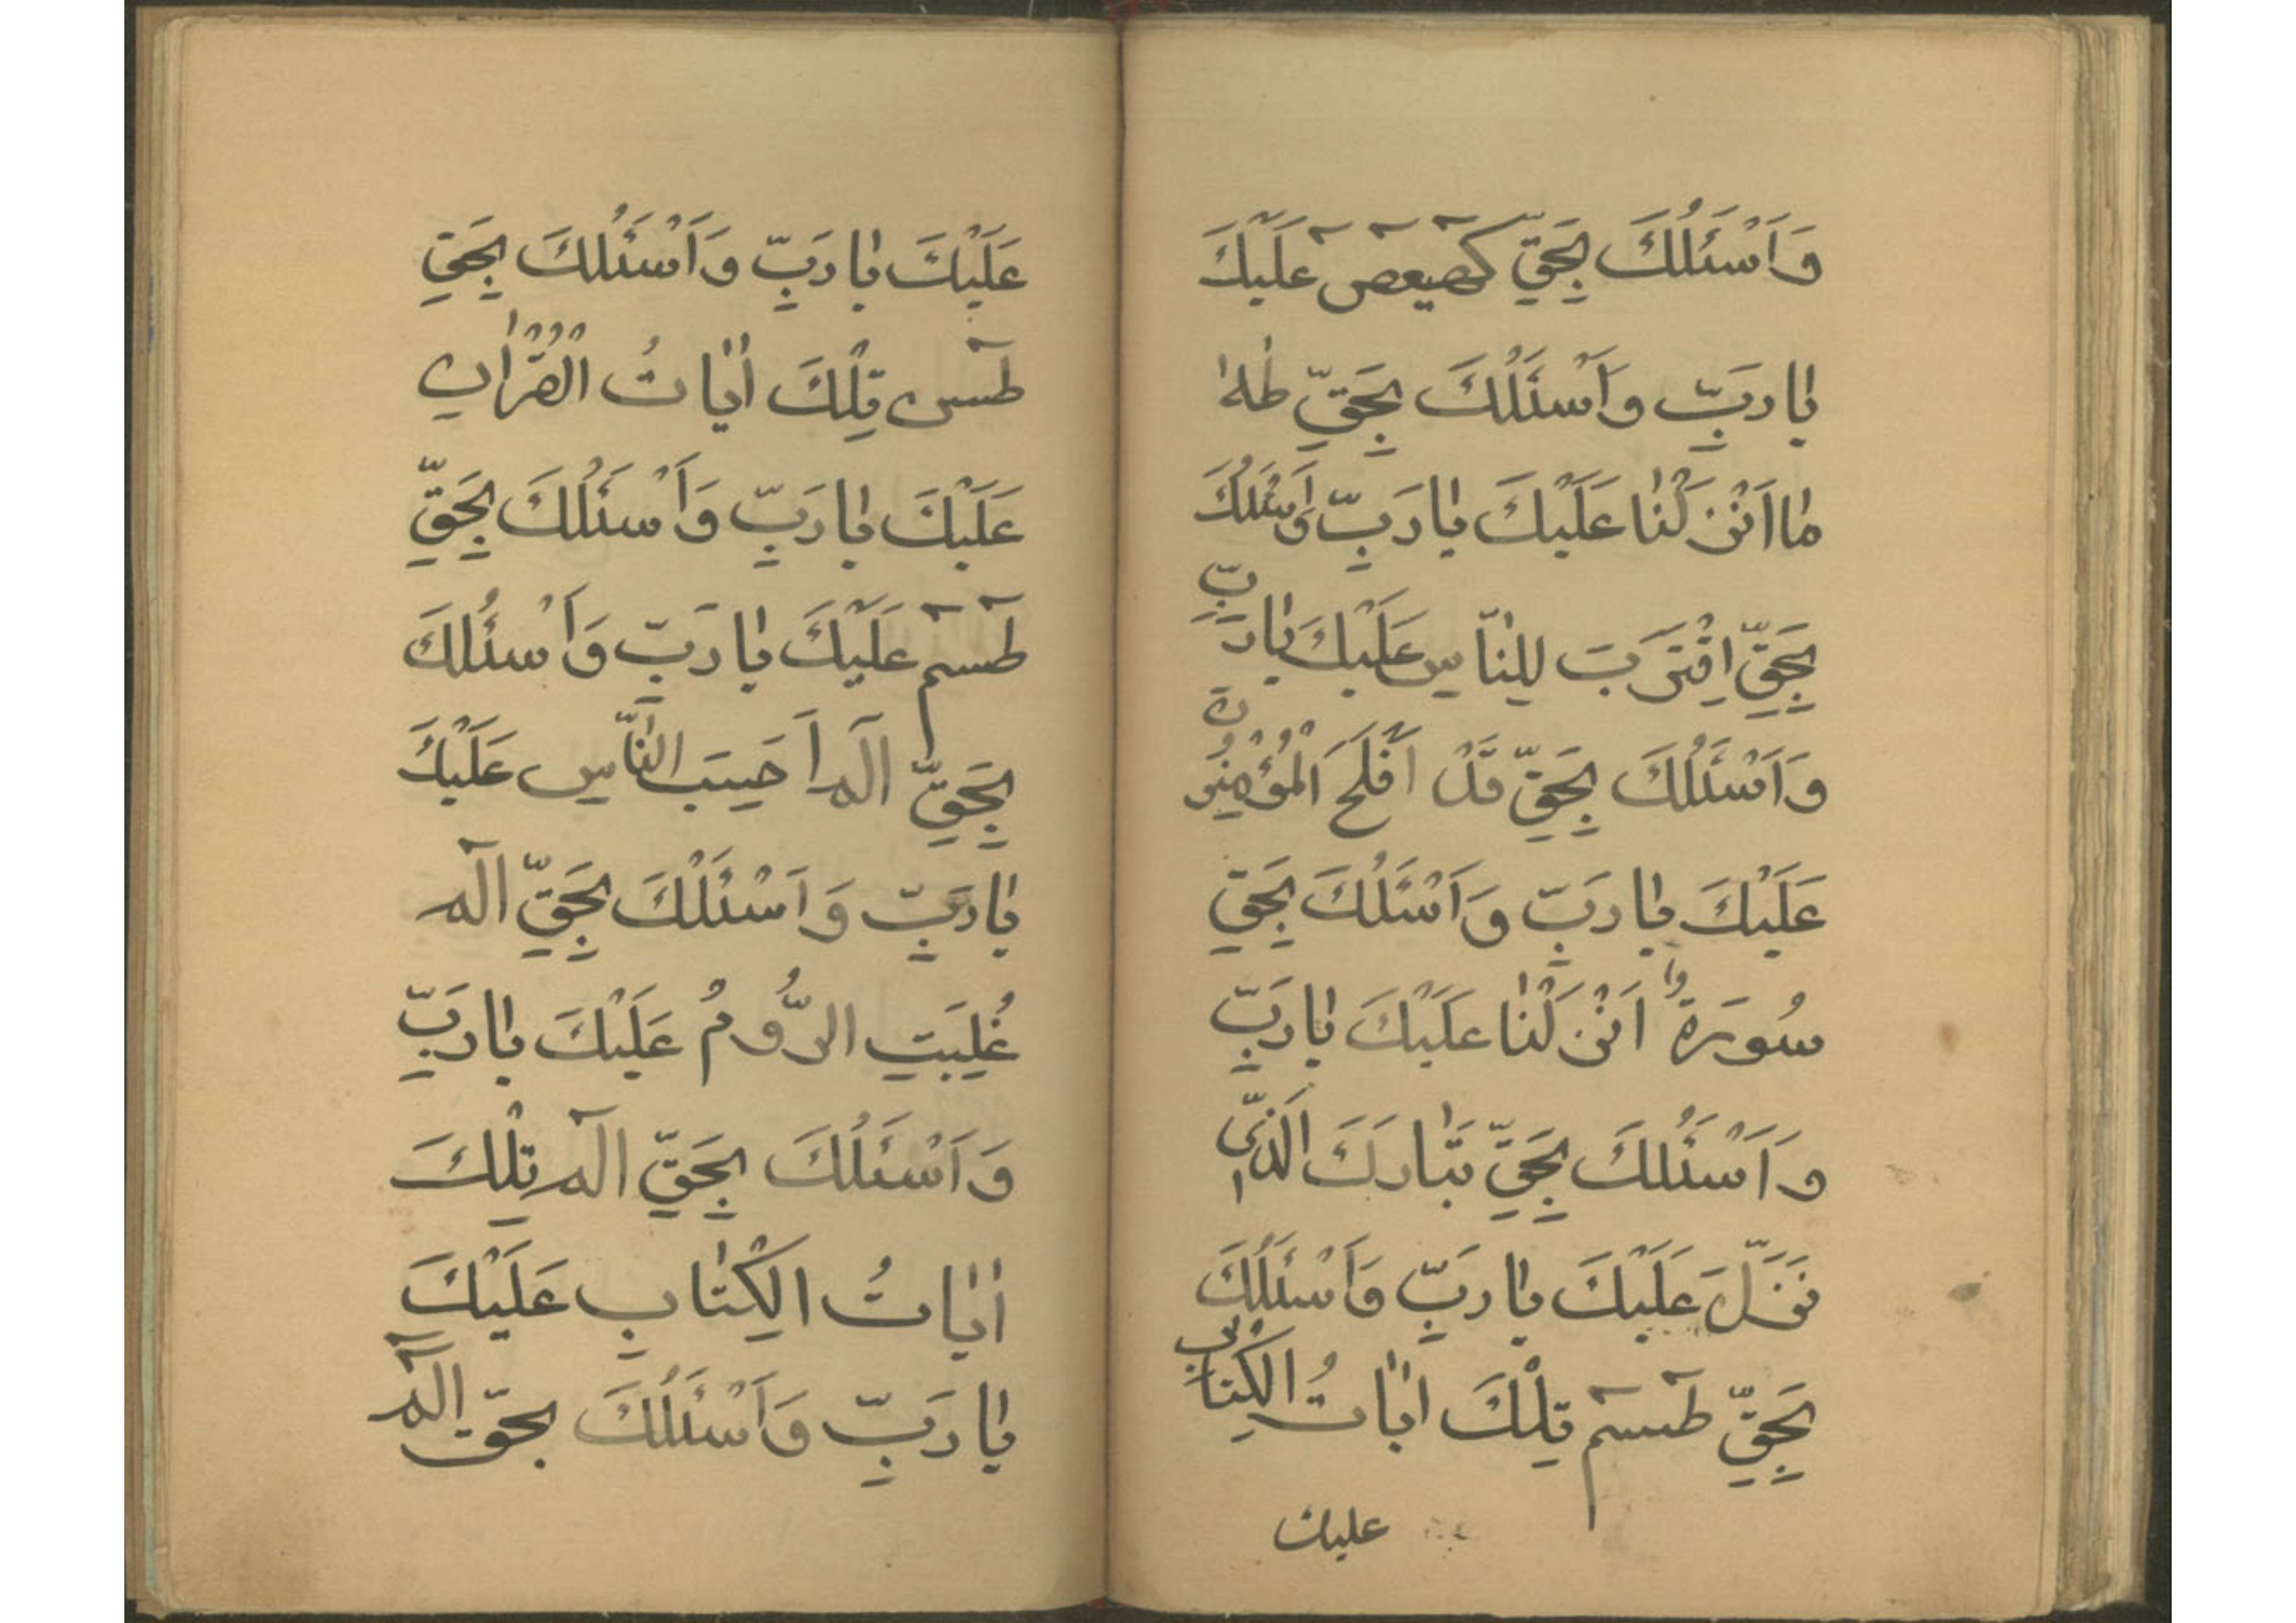 وَاَسْئَلُكَ بِحَقِّ كهيعص عَلَيْكَ
يا رَبِّ وَاَسْئَلُكَ بِحَقِّ طٰهٰ
ما اَنْزَلْنا عَلَيْكَ يا رَبِّ وَاَسْئَلُكَ
بِحَقِّ اِقْتَرَبَ لِلنّاسِ عَلَيْكَ يا رَبِّ
وَاَسْئَلُكَ بِحَقِّ قَدْ اَفْلَحَ الْمُؤْمِنُونَ
عَلَيْكَ يا رَبِّ وَاَسْئَلُكَ بِحَقِّ
سُورَةٌ اَنْزَلْنا عَلَيْكَ يا رَبِّ
وَاَسْئَلُكَ بِحَقِّ تَبارَكَ الَّذي
نَزَّلَ عَلَيْكَ يا رَبِّ وَاَسْئَلُكَ
بِحَقِّ طسم تِلْكَ اياتُ الْكِتابِ
عليك
عَلَيْكَ يا رَبِّ وَاَسْئَلُكَ بِحَقِّ
طس تِلْكَ اياتُ الْقُرْانِ
عَلَيْكَ يا رَبِّ وَاَسْئَلُكَ بِحَقِّ
طسم عَلَيْكَ يا رَبِّ وَاَسْئَلُكَ
بِحَقِّ الم اَحَسِبَ النّاسُ عَلَيْكَ
يا رَبِّ وَاَسْئَلُكَ بِحَقِّ الم
غُلِبَتِ الرُّومُ عَلَيْكَ يا رَبِّ
وَاَسْئَلُكَ بِحَقِّ الم تِلْكَ
اياتُ الْكِتابِ عَلَيْكَ
يا رَبِّ وَاَسْئَلُكَ بحقّ الم